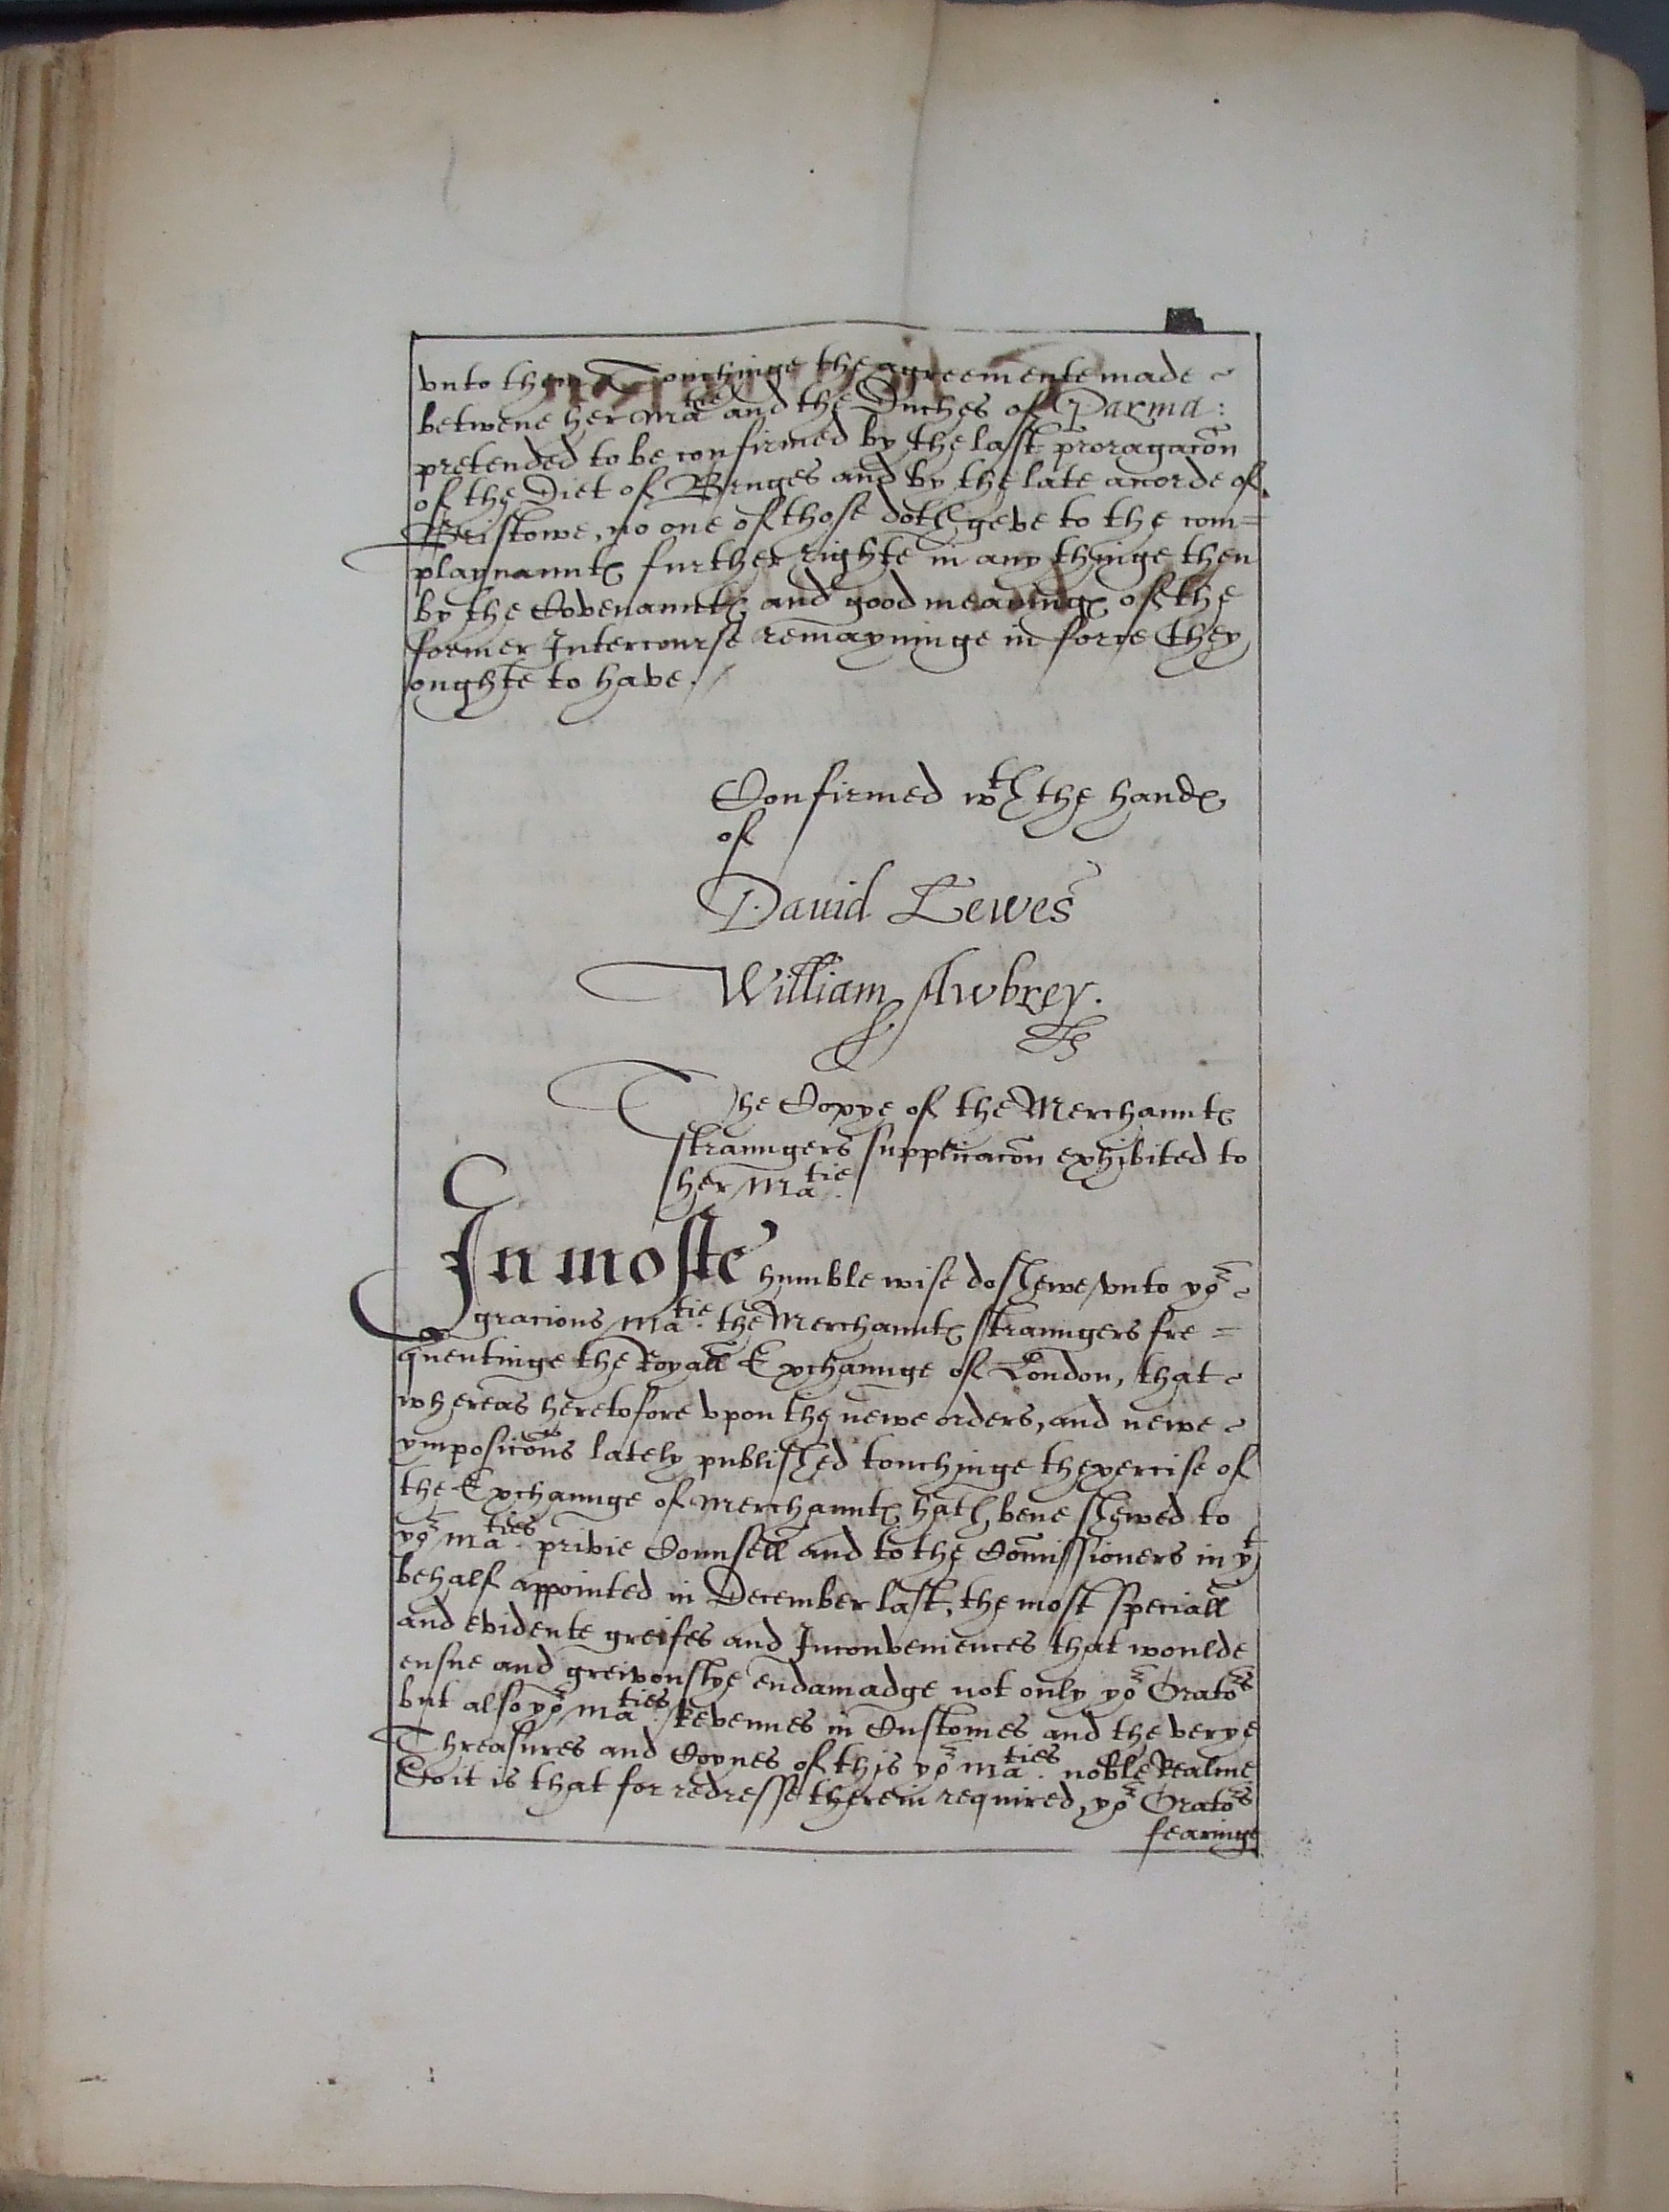 vnto them Touchinge the agreemente made
betwene her Ma^tie and the Duches of Parma:
pretended to be confirmed by the last proragacōn
of the Diet of Bruges and by the late acorde of
Bristowe, no one of those doth geve to the com=
playnauntꝭ further righte in any thinge then
by the Covenauntꝭ and good meaningꝭ of the
former Intercourse remayninge in force they
oughte to have.
Confirmed w^th the handꝭ
of
Dauid Lewes
William Awbrey.
The Coppye of the Merchauntꝭ
straungers supplicacōn exhibited to
her Ma^tie.
In moste humble wise do shewe vnto yo^r
gracious Ma^tie. the Merchauntꝭ straungers fre=
quentinge the Royall Exchaunge of London, that
whereas heretofore vpon the newe orders, and newe
ymposicōns lately published touchinge thexercise of
the Exchaunge of Merchauntꝭ hath bene shewed to
yo^r Ma^ties. privie Counsell and to the Comissioners in y^t
behalf appointed in December last, the most speciall
and evidente greifes and Inconveniences that woulde
ensue and greivouslye endamadge not only yo^r Orato^rs
but also yo^r Ma^ties. Revenues in Customes and the verye
Threasures and Coynes of this yo^r Ma^ties. noble Realme
So it is that for redresse therein required, yo^r Orato^rs
fearinge